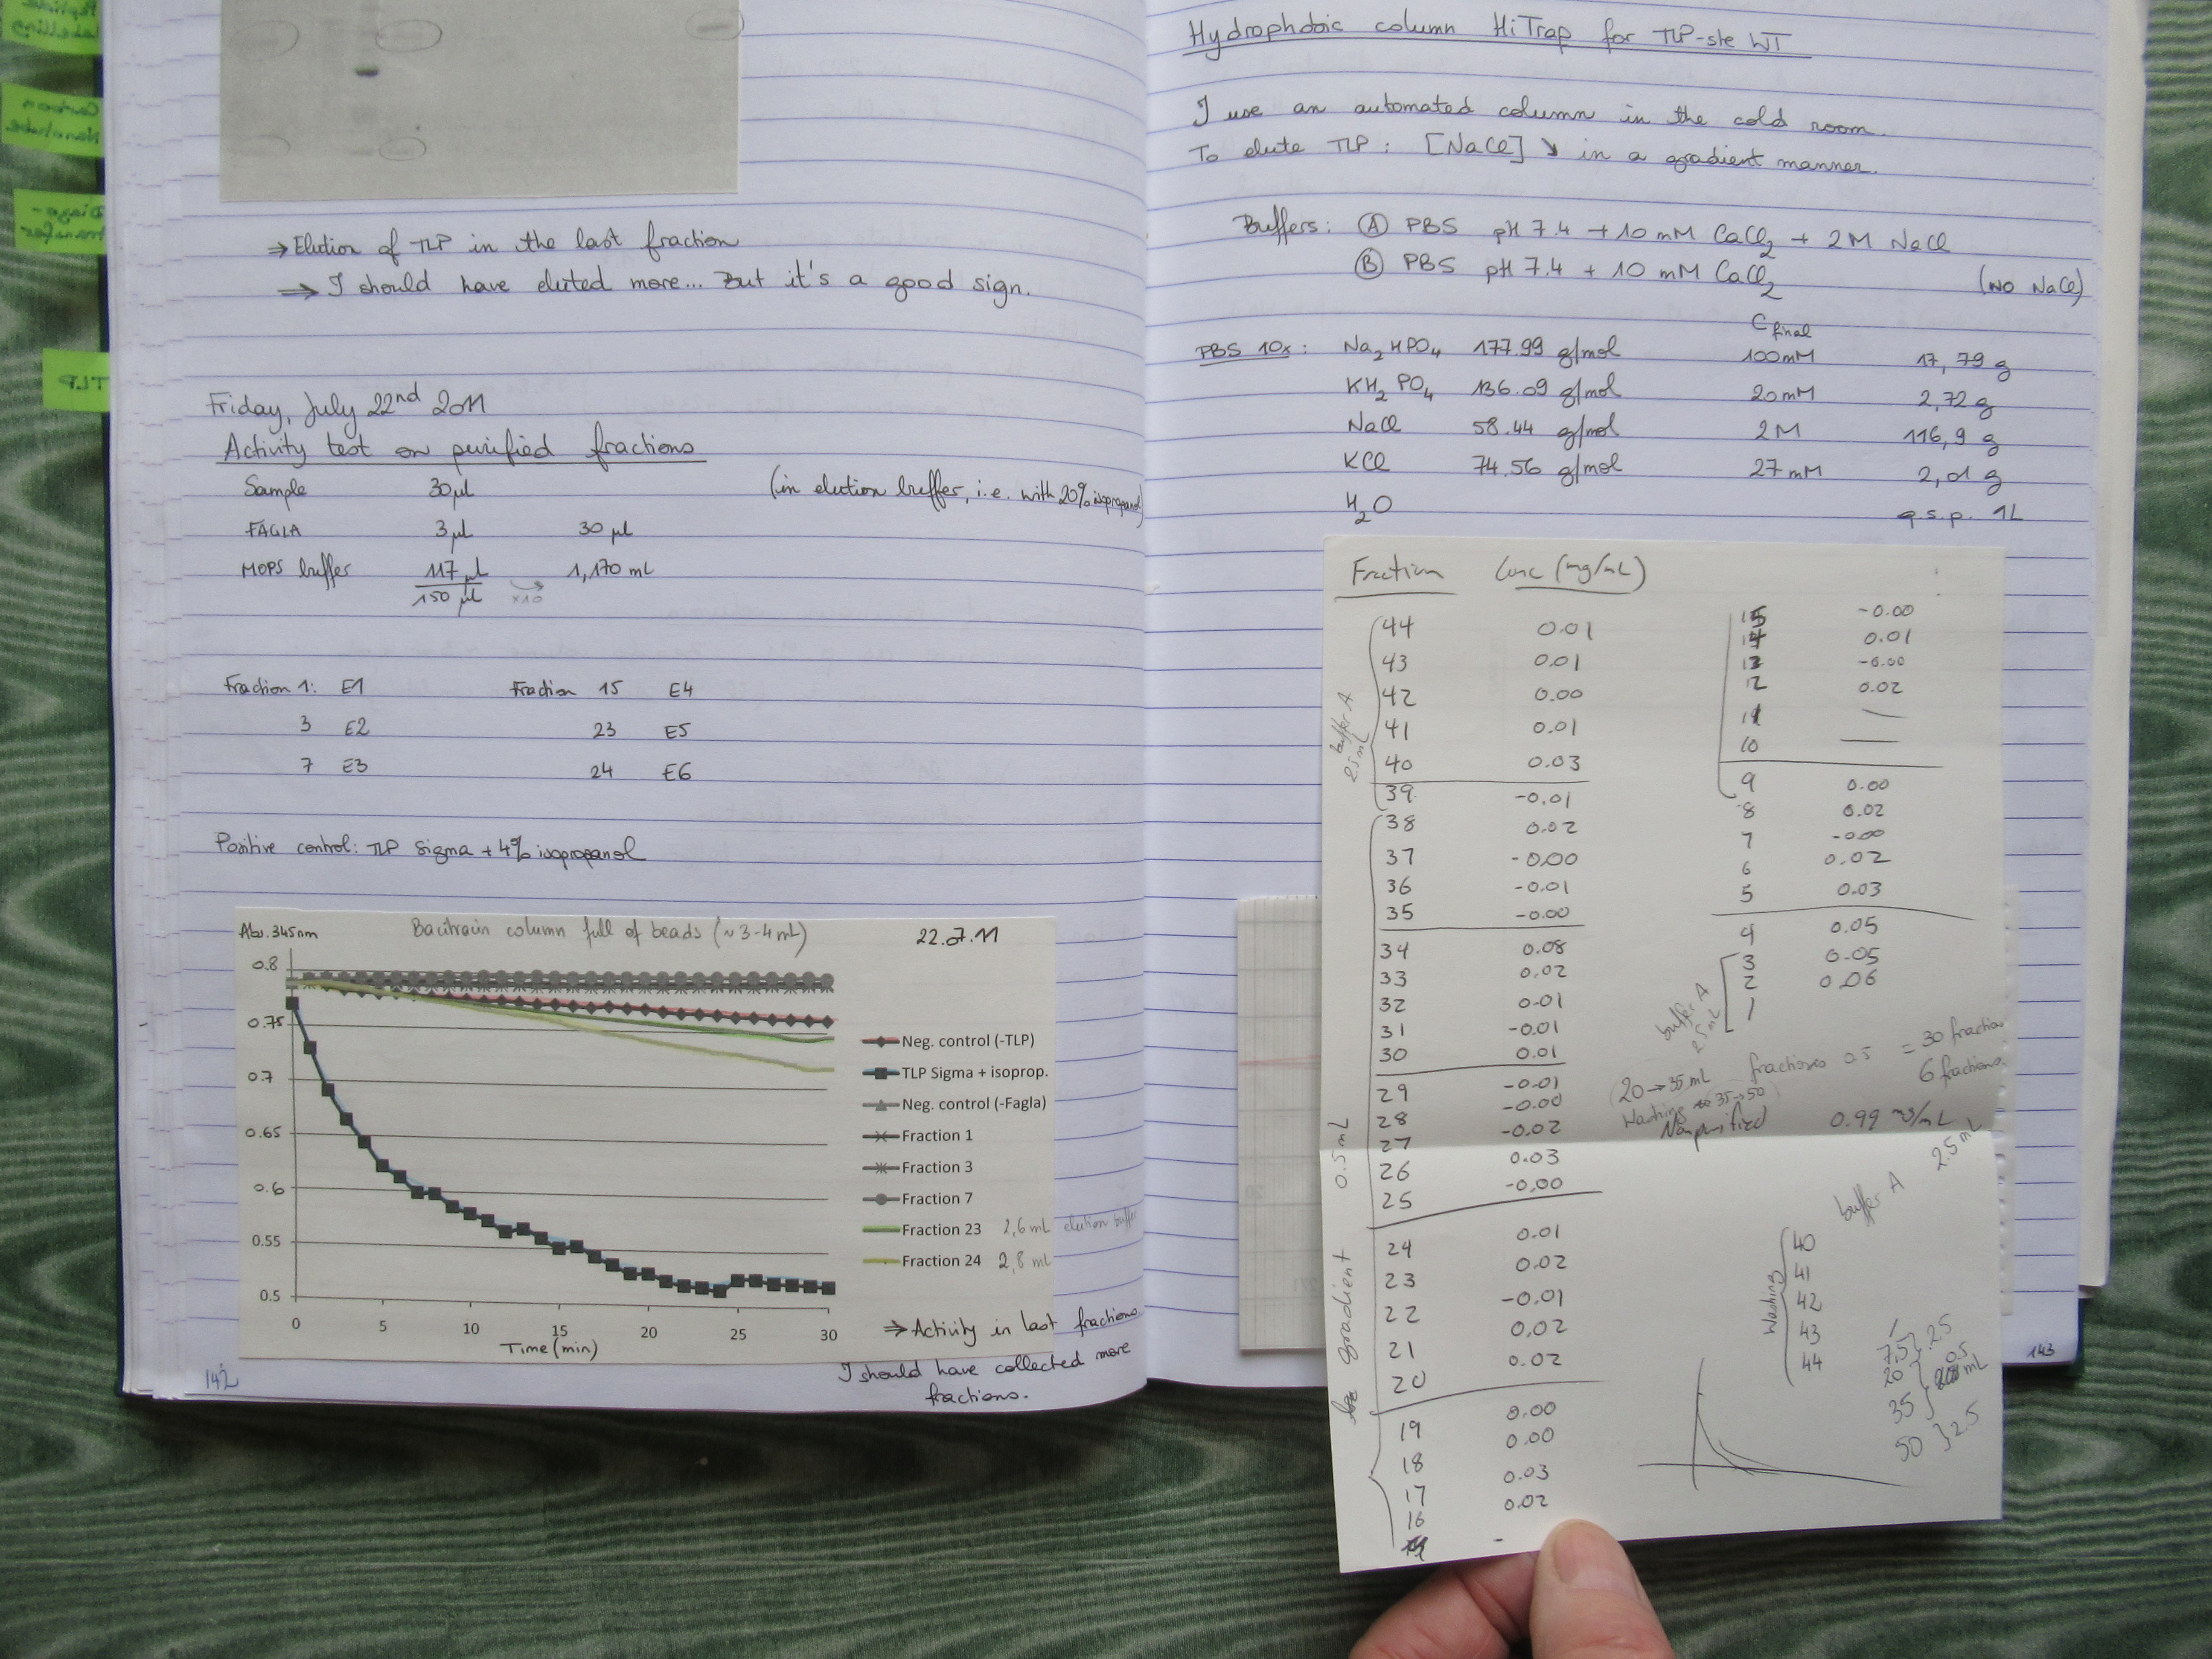 TLP
⇒ Elution of TLP in the last fraction
⇒ I should have eluted more... But it's a good sign.
Friday, July 22nd 2011
Activity test on purified fractions
Sample 30 µl (in elution buffer, i.e. with 20% isopropanol)
FAGLA 3 µl 30 µl
MOPS buffer 117 µl 1,170 mL
150 µl ×10
Fraction 1: E1 Fraction 15 E4
3 E2 23 E5
7 E3 24 E6
Positive control: TLP Sigma + 4% isopropanol
Abs. 345nm Bacitracin column full of beads (~3-4 mL) 22.07.11
0.8
0.75
0.7
0.65
0.6
0.55
0.5
0 5 10 15 20 25 30
Time (min)
Neg. control (-TLP)
TLP Sigma + isoprop.
Neg. control (-Fagla)
Fraction 1
Fraction 3
Fraction 7
Fraction 23 2,6 mL elution buffer
Fraction 24 2,8 mL
⇒ Activity in last fractions.
I should have collected more
fractions.
142
Hydrophobic column HiTrap for TLP-ste WT
I use an automated column in the cold room.
To elute TLP: [NaCl] ↘ in a gradient manner.
Buffers: Ⓐ PBS pH 7.4 + 10 mM CaCl2 + 2M NaCl
Ⓑ PBS pH 7.4 + 10 mM CaCl2 (NO NaCl)
C final
PBS 10x: Na2HPO4 177.99 g/mol 100mM 17,79 g
KH2PO4 136.09 g/mol 20mM 2,72 g
NaCl 58.44 g/mol 2M 116,9 g
KCl 74.56 g/mol 27 mM 2,01 g
H2O q.s.p. 1L
Fraction Conc (mg/mL)
44 0.01
43 0.01
42 0.00
41 0.01
40 0.03
39 -0.01
38 0.02
37 -0.00
36 -0.01
35 -0.00
34 0.08
33 0.02
32 0.01
31 -0.01
30 0.01
29 -0.01
28 -0.00
27 -0.02
26 0.03
25 -0.00
24 0.01
23 0.02
22 -0.01
21 0.02
20 0.02
19 0.00
18 0.00
17 0.03
16 0.02
-
buffer A
2.5 mL
gradient 0.5 mL
15 -0.00
14 0.01
13 -0.00
12 0.02
11 —
10 —
9 0.00
8 0.02
7 -0.00
6 0.02
5 0.03
4 0.05
3 0.05
2 0.06
1
buffer A
2.5 mL
(20→35 mL fractions 0.5 = 30 fractions
Washing 35→50) 6 fractions.
Nonpurified 0.99 mg/mL
buffer A 2.5 mL
Washing
40
41
42
43
44
1
7.5 2.5
20 0.5 mL
35
50 2.5
143